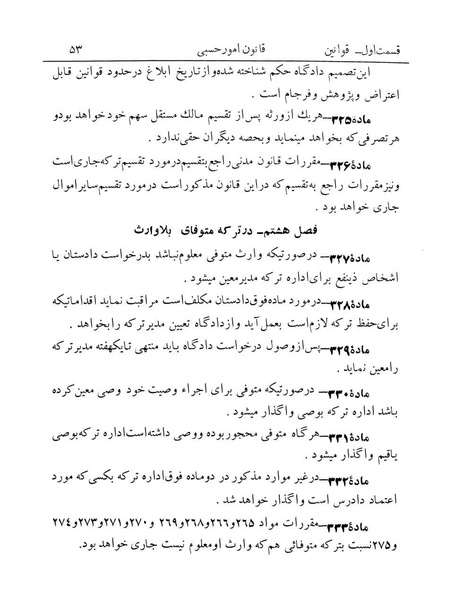 قسمت‌اول_ قوانین قانون امورحسبی ۵۳
این‌تصمیم دادگاه حکم شناخته شده‌وازتاریخ ابلاغ درحدود قوانین قابل
اعتراض وپژوهش وفرجام است .
مادهٔ۳۲۵_هریك ازورثه پس‌از تقسیم مالك مستقل سهم خودخواهد بودو
هرتصرفی‌که بخواهد مینماید وبحصه دیگران حقی‌ندارد .
مادهٔ۳۲۶_مقررات قانون مدنی‌راجع‌بتقسیم‌درمورد تقسیم‌ترکه‌جاری‌است
ونیزمقررات راجع به‌تقسیم‌که دراین قانون مذکوراست درمورد تقسیم‌سایراموال
جاری خواهد بود .
فصل هشتم_ درترکه متوفای بلاوارث
مادهٔ۳۲۷_ درصورتیکه وارث متوفی معلوم‌نباشد بدرخواست دادستان یا
اشخاص ذینفع برای‌اداره ترکه مدیرمعین میشود .
مادهٔ۳۲۸_درمورد ماده‌فوق‌دادستان مکلف‌است مراقبت نماید اقداماتیکه
برای‌حفظ ترکه لازم‌است بعمل‌آید وازدادگاه تعیین مدیرترکه رابخواهد .
مادهٔ۳۲۹_پس‌ازوصول درخواست دادگاه باید منتهی تایکهفته مدیرترکه
رامعین نماید .
مادهٔ۳۳۰_ درصورتیکه متوفی برای اجراء وصیت خود وصی معین‌کرده
باشد اداره ترکه بوصی واگذار میشود .
مادهٔ۳۳۱_هرگاه متوفی محجوربوده ووصی داشته‌است‌اداره ترکه‌بوصی
یاقیم واگذار میشود .
مادهٔ۳۳۲_درغیر موارد مذکور در دوماده فوق‌اداره ترکه بکسی‌که مورد
اعتماد دادرس است واگذار خواهد شد .
مادهٔ۳۳۳_مقررات مواد ۲۶۵و۲۶۶و۲۶۸و۲۶۹ و۲۷۰و۲۷۱و۲۷۳و۲۷۴
و۲۷۵نسبت بترکه متوفائی هم‌که وارث اومعلوم نیست جاری خواهد بود.